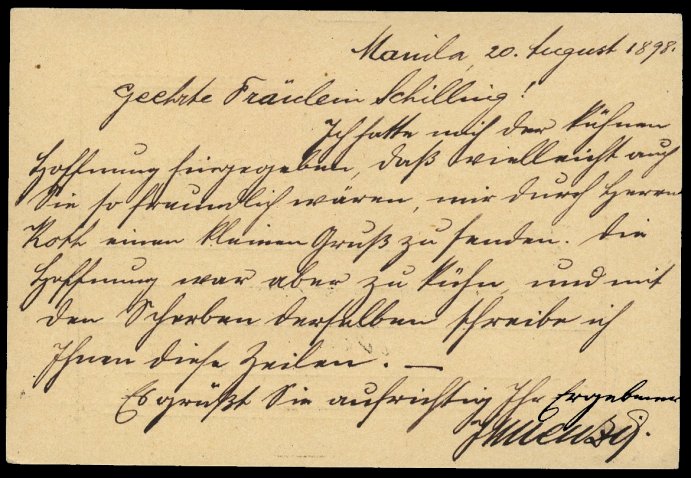 Manila, 20. August 1898.
Geehrte Fräulein Schilling!
Ich hatte mich der kühnen
Hoffnung hingegeben, daß vielleicht auch
Sie so freundlich wären, mir durch Herrn
Roth einen kleinen Gruß zu senden. Die
Hoffnung war aber zu kühn, und mit
den Scherben derselben schreibe ich
Ihnen diese Zeilen. —
Es grüßt Sie aufrichtig Ihr Ergebener